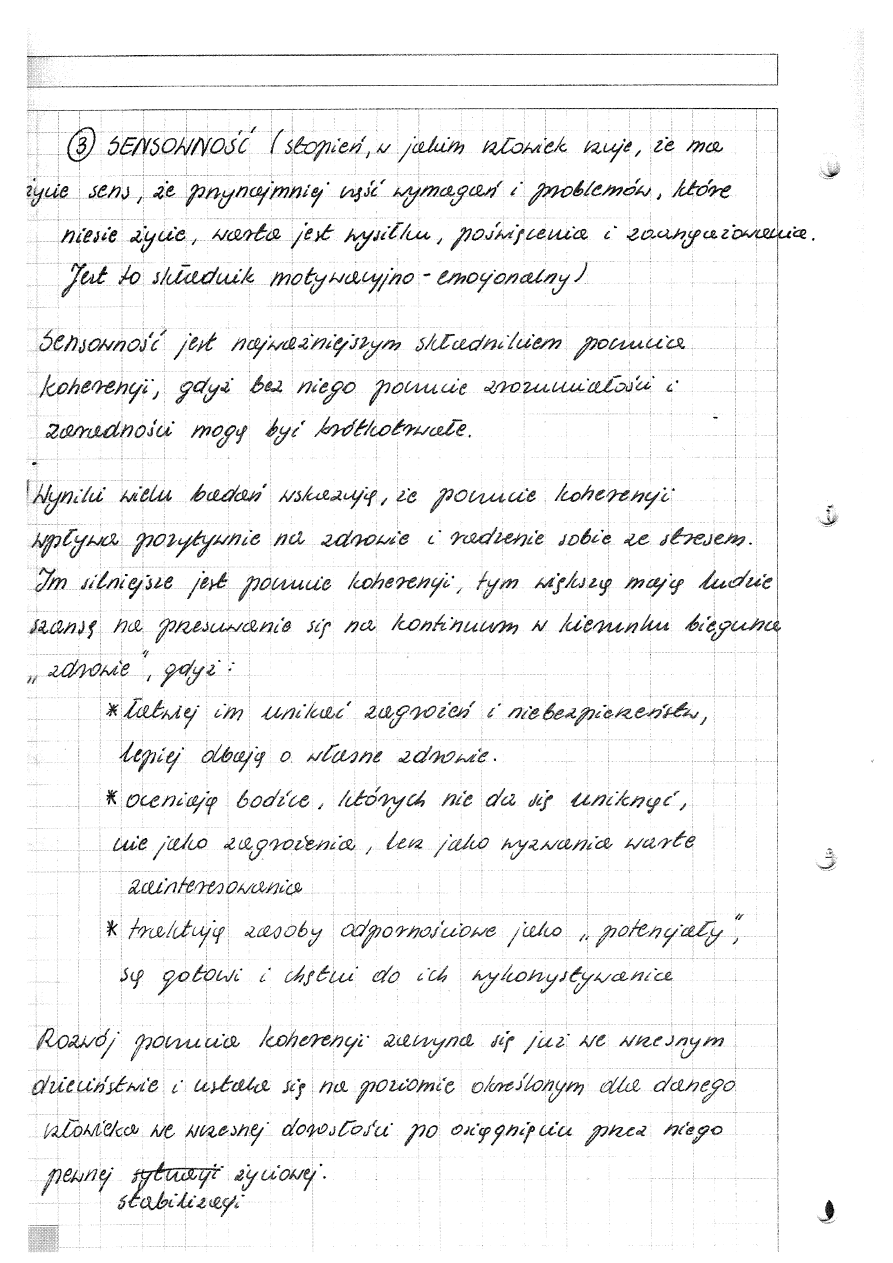 ③ SENSOWNOŚĆ (stopień, w jakim człowiek czuje, że ma
życie sens, że przynajmniej część wymagań i problemów, które
niesie życie, warta jest wysiłku, poświęcenia i zaangażowania.
Jest to składnik motywacyjno - emocjonalny)
Sensowność jest najważniejszym składnikiem poczucia
koherencji, gdyż bez niego poczucie zrozumiałości i
zaradności mogą być krótkotrwałe.
Wyniki wielu badań wskazują, że poczucie koherencji
wpływa pozytywnie na zdrowie i radzenie sobie ze stresem.
Im silniejsze jest poczucie koherencji, tym większą mają ludzie
szansę na przesuwanie się na kontinuum w kierunku bieguna
„zdrowie", gdyż:
* łatwiej im unikać zagrożeń i niebezpieczeństw,
lepiej dbają o własne zdrowie.
* oceniają bodźce, których nie da się uniknąć,
nie jako zagrożenia, lecz jako wyzwania warte
zainteresowania
* traktują zasoby odpornościowe jako „potencjały",
są gotowi i chętni do ich wykorzystywania
Rozwój poczucia koherencji zaczyna się już we wczesnym
dzieciństwie i ustala się na poziomie określonym dla danego
człowieka we wczesnej dorosłości po osiągnięciu przez niego
pewnej sytuacji życiowej.
stabilizacji